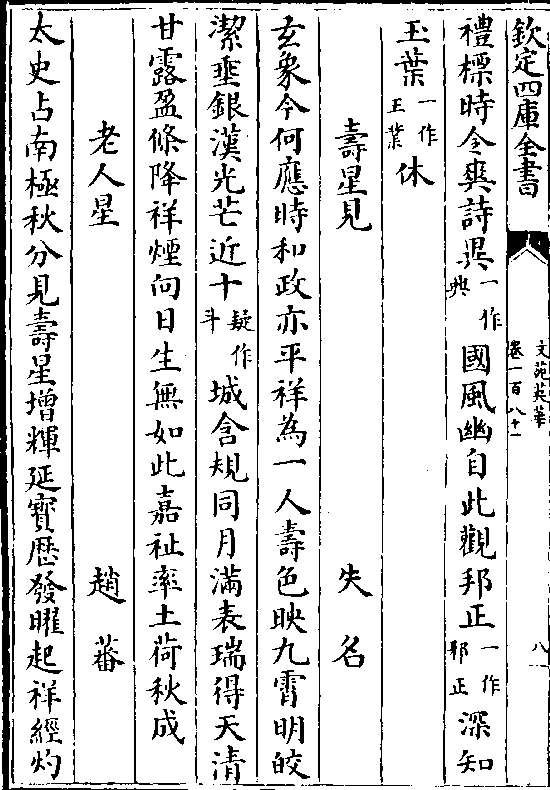 欽定四庫全書
文苑英華
卷一百八十一
八
禮標時令爽詩一作典國風幽自此觀邦正一作邪正深知
玉葉一作王業休
壽星見 失名
玄象今何應時和政亦平祥為一人壽色映九霄明皎
潔垂銀漢光芒近十疑作斗城含規同月滿表瑞得天清
甘露盈條降祥煙向日生無如此嘉祉率土荷秋成
老人星 趙蕃
太史占南極秋分見壽星增輝延寳歴發曜起祥經灼